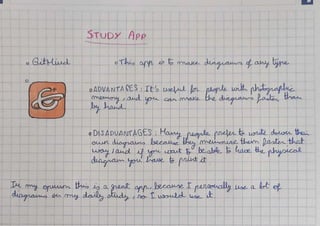 STUDY APP
• GitMind
• This app is to make diagrams of any type
• ADVANTATES: It's useful for people with photographic
memory, and you can make the diagrams faster than
by hand.
• DISADVANTAGES: Many people prefer to write down their
own diagrams because they memorise them faster that
way, and if you want to be able to have the physical
diagram you have to print it
In my opinion this is a great app, because I personally use a lot of
diagrams in my daily study, so I would use it.